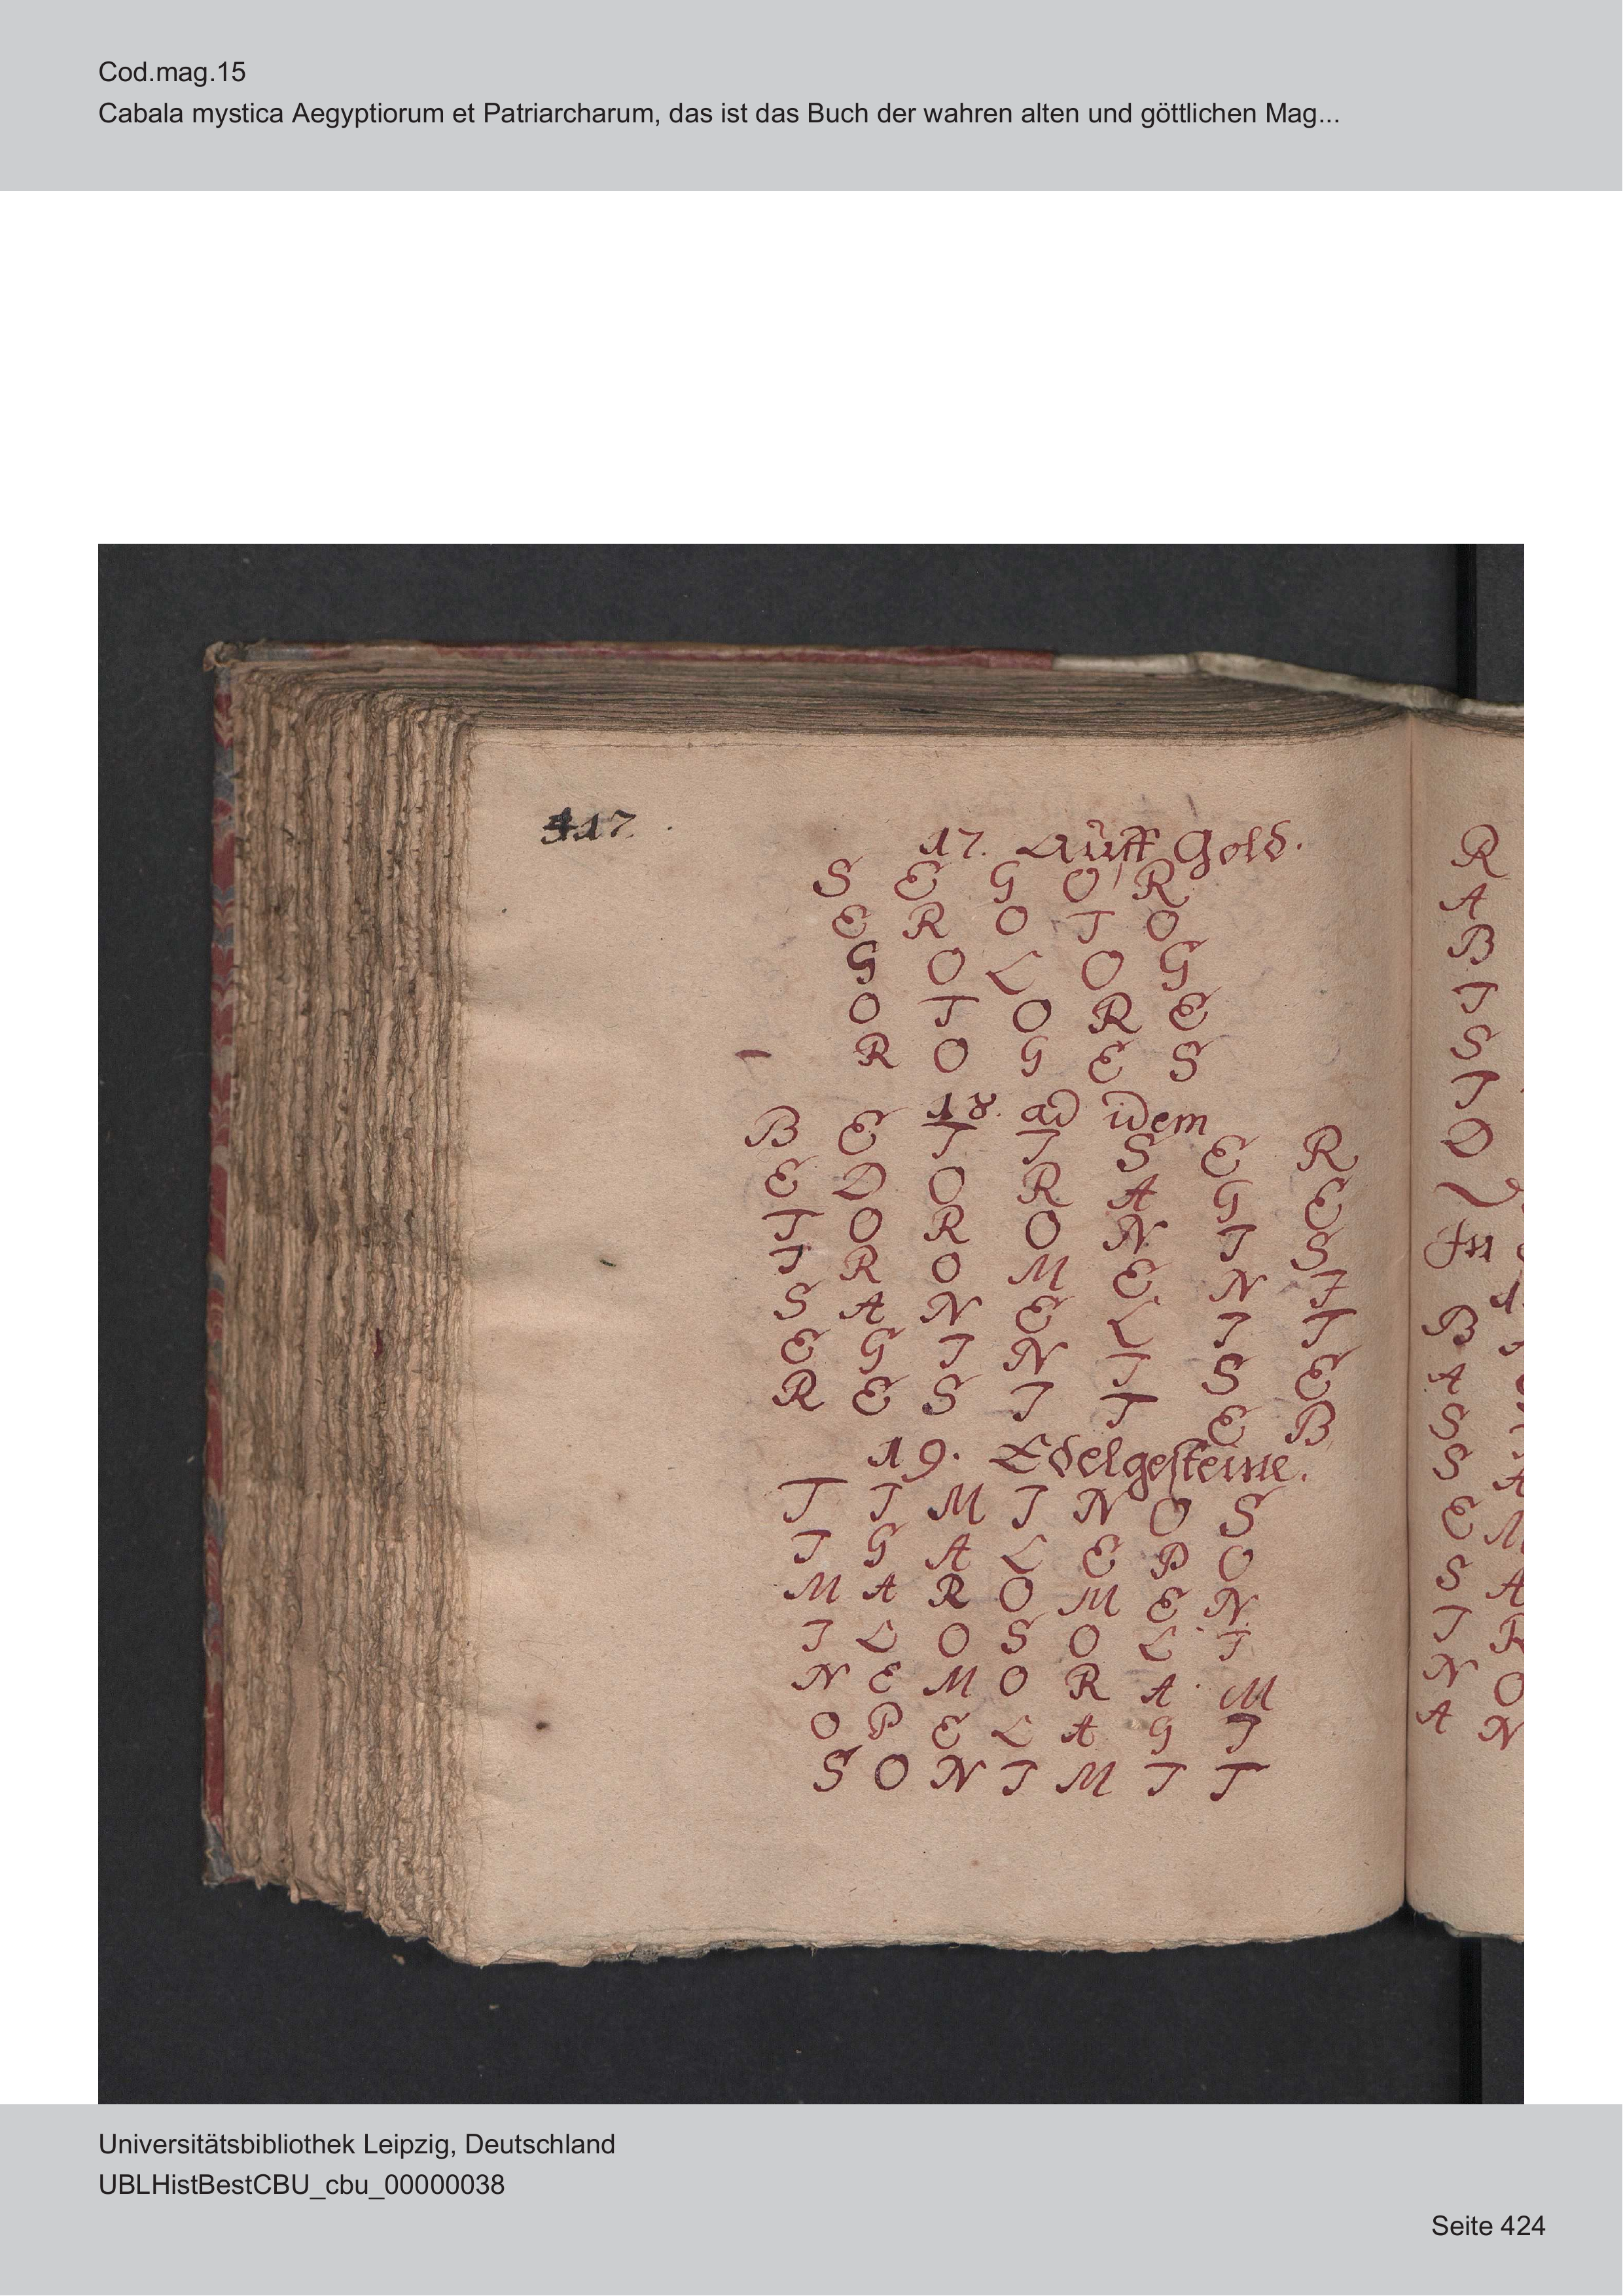 Cod.mag.15
Cabala mystica Aegyptiorum et Patriarcharum, das ist das Buch der wahren alten und göttlichen Mag...
417.
17. Auff Gold.
S E G O R
E R O T O
G O L O G
O T O R E
R O G E S
18. ad idem
B E T I S E R
E D O R A G E
T O R O N I S
I R O M E N I
S A N E L I T
E G I N I S E
R E S I T E B
19. Edelgesteine.
T I M I N O S
I G A L E P O
M A R O M E N
I L O S O L I
N E M O R A M
O P E L A G I
S O N I M I T
R
A
B
I
S
I
D
B
A
S
S A
E M
S A
I R
N O
A N
Universitätsbibliothek Leipzig, Deutschland
UBLHistBestCBU_cbu_00000038
Seite 424